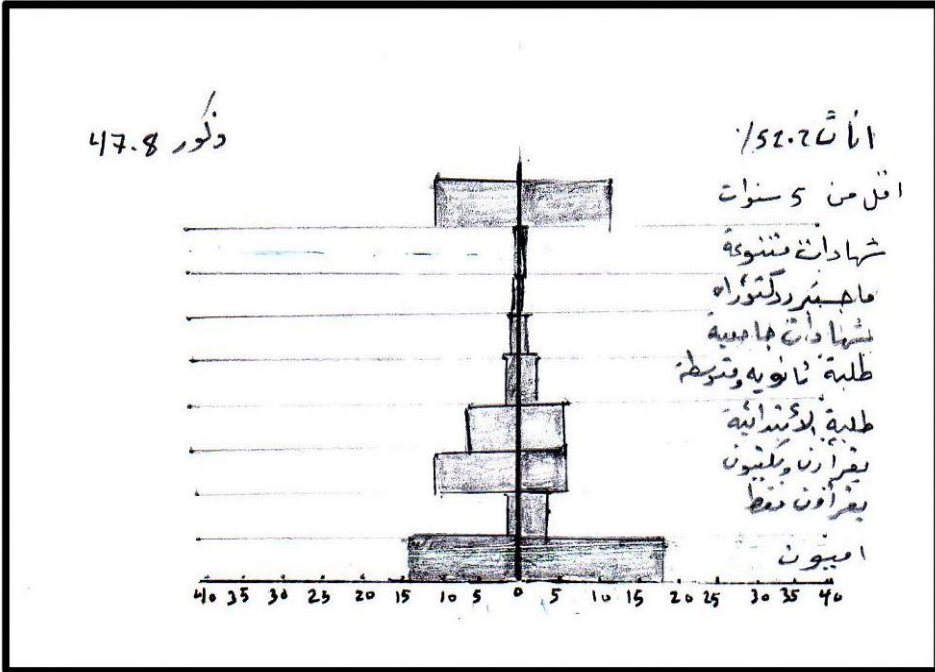 اناث 52.2%
ذكور 47.8
اقل من 5 سنوات
شهادات متنوعة
ماجستير ودكتوراه
شهادات جامعية
طلبة ثانويه ومتوسطة
طلبة الأبتدائية
يقرأون ويكتبون
يقرأون فقط
اميون
40 35 30 25 20 15 10 5 0 5 10 15 20 25 30 35 40